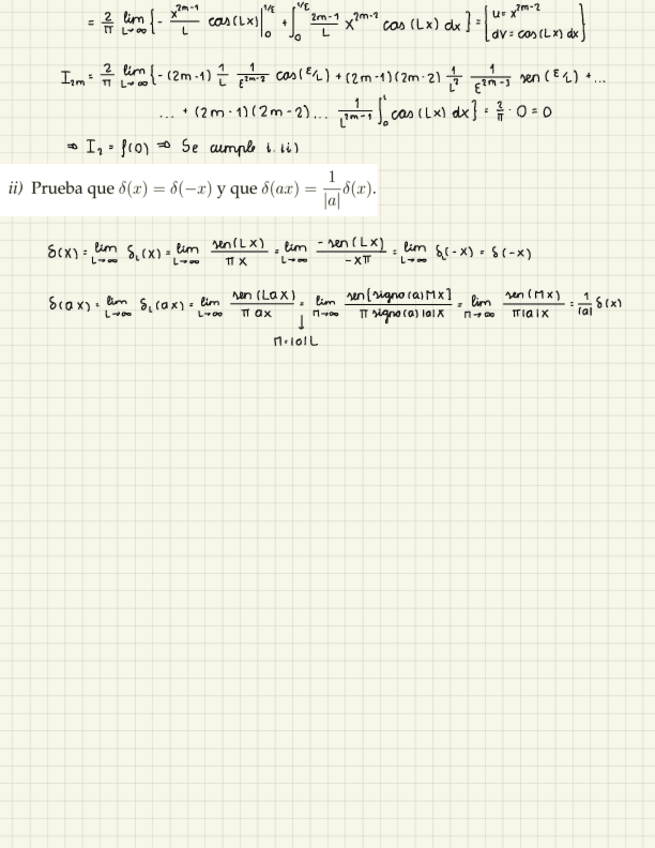 = 2/π lim_{L→∞} { - x^{2m-1}/L cos(Lx) |_0^{1/ε} + ∫_0^{1/ε} 2m-1/L x^{2m-2} cos(Lx) dx } = { u = x^{2m-2} dv = cos(Lx) dx }
I_{2m} = 2/π lim_{L→∞} { - (2m-1) 1/L 1/ε^{2m-2} cos(ε/L) + (2m-1)(2m-2) 1/L² 1/ε^{2m-3} sen(ε/L) + ...
... + (2m-1)(2m-2)... 1/L^{2m-1} ∫_0 cos(Lx) dx } = 2/π · 0 = 0
⇒ I_2 = f(0) ⇒ Se cumple i.ii)
ii) Prueba que δ(x) = δ(−x) y que δ(ax) = 1/|a| δ(x).
δ(x) = lim_{L→∞} δ_L(x) = lim_{L→∞} sen(Lx)/πx = lim_{L→∞} -sen(Lx)/-xπ = lim_{L→∞} δ_L(-x) = δ(-x)
δ(ax) = lim_{L→∞} δ_L(ax) = lim_{L→∞} sen(Lax)/π ax = lim_{M→∞} sen[signo(a)Mx]/π signo(a)|a|x = lim_{M→∞} sen(Mx)/π|a|x = 1/|a| δ(x)
↓
M=|a|L